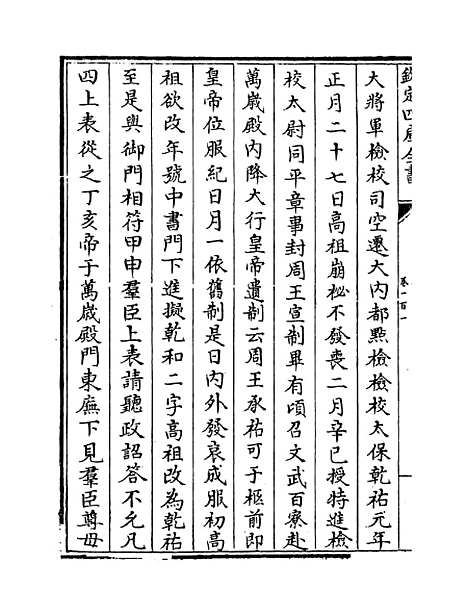 欽定四庫全書
卷一百一
大將軍檢校司空遷大內都㸃檢檢校太保乾祐元年
正月二十七日高祖崩祕不發喪二月辛巳授特進檢
校太尉同平章事封周王宣制畢有頃召文武百寮赴
萬嵗殿內降大行皇帝遺制云周王承祐可于柩前即
皇帝位服紀日月一依舊制是日內外發哀成服初高
祖欲改年號中書門下進擬乾和二字高祖改為乾祐
至是與御門相符甲申羣臣上表請聽政詔答不允凡
四上表從之丁亥帝于萬嵗殿門東廡下見羣臣尊母